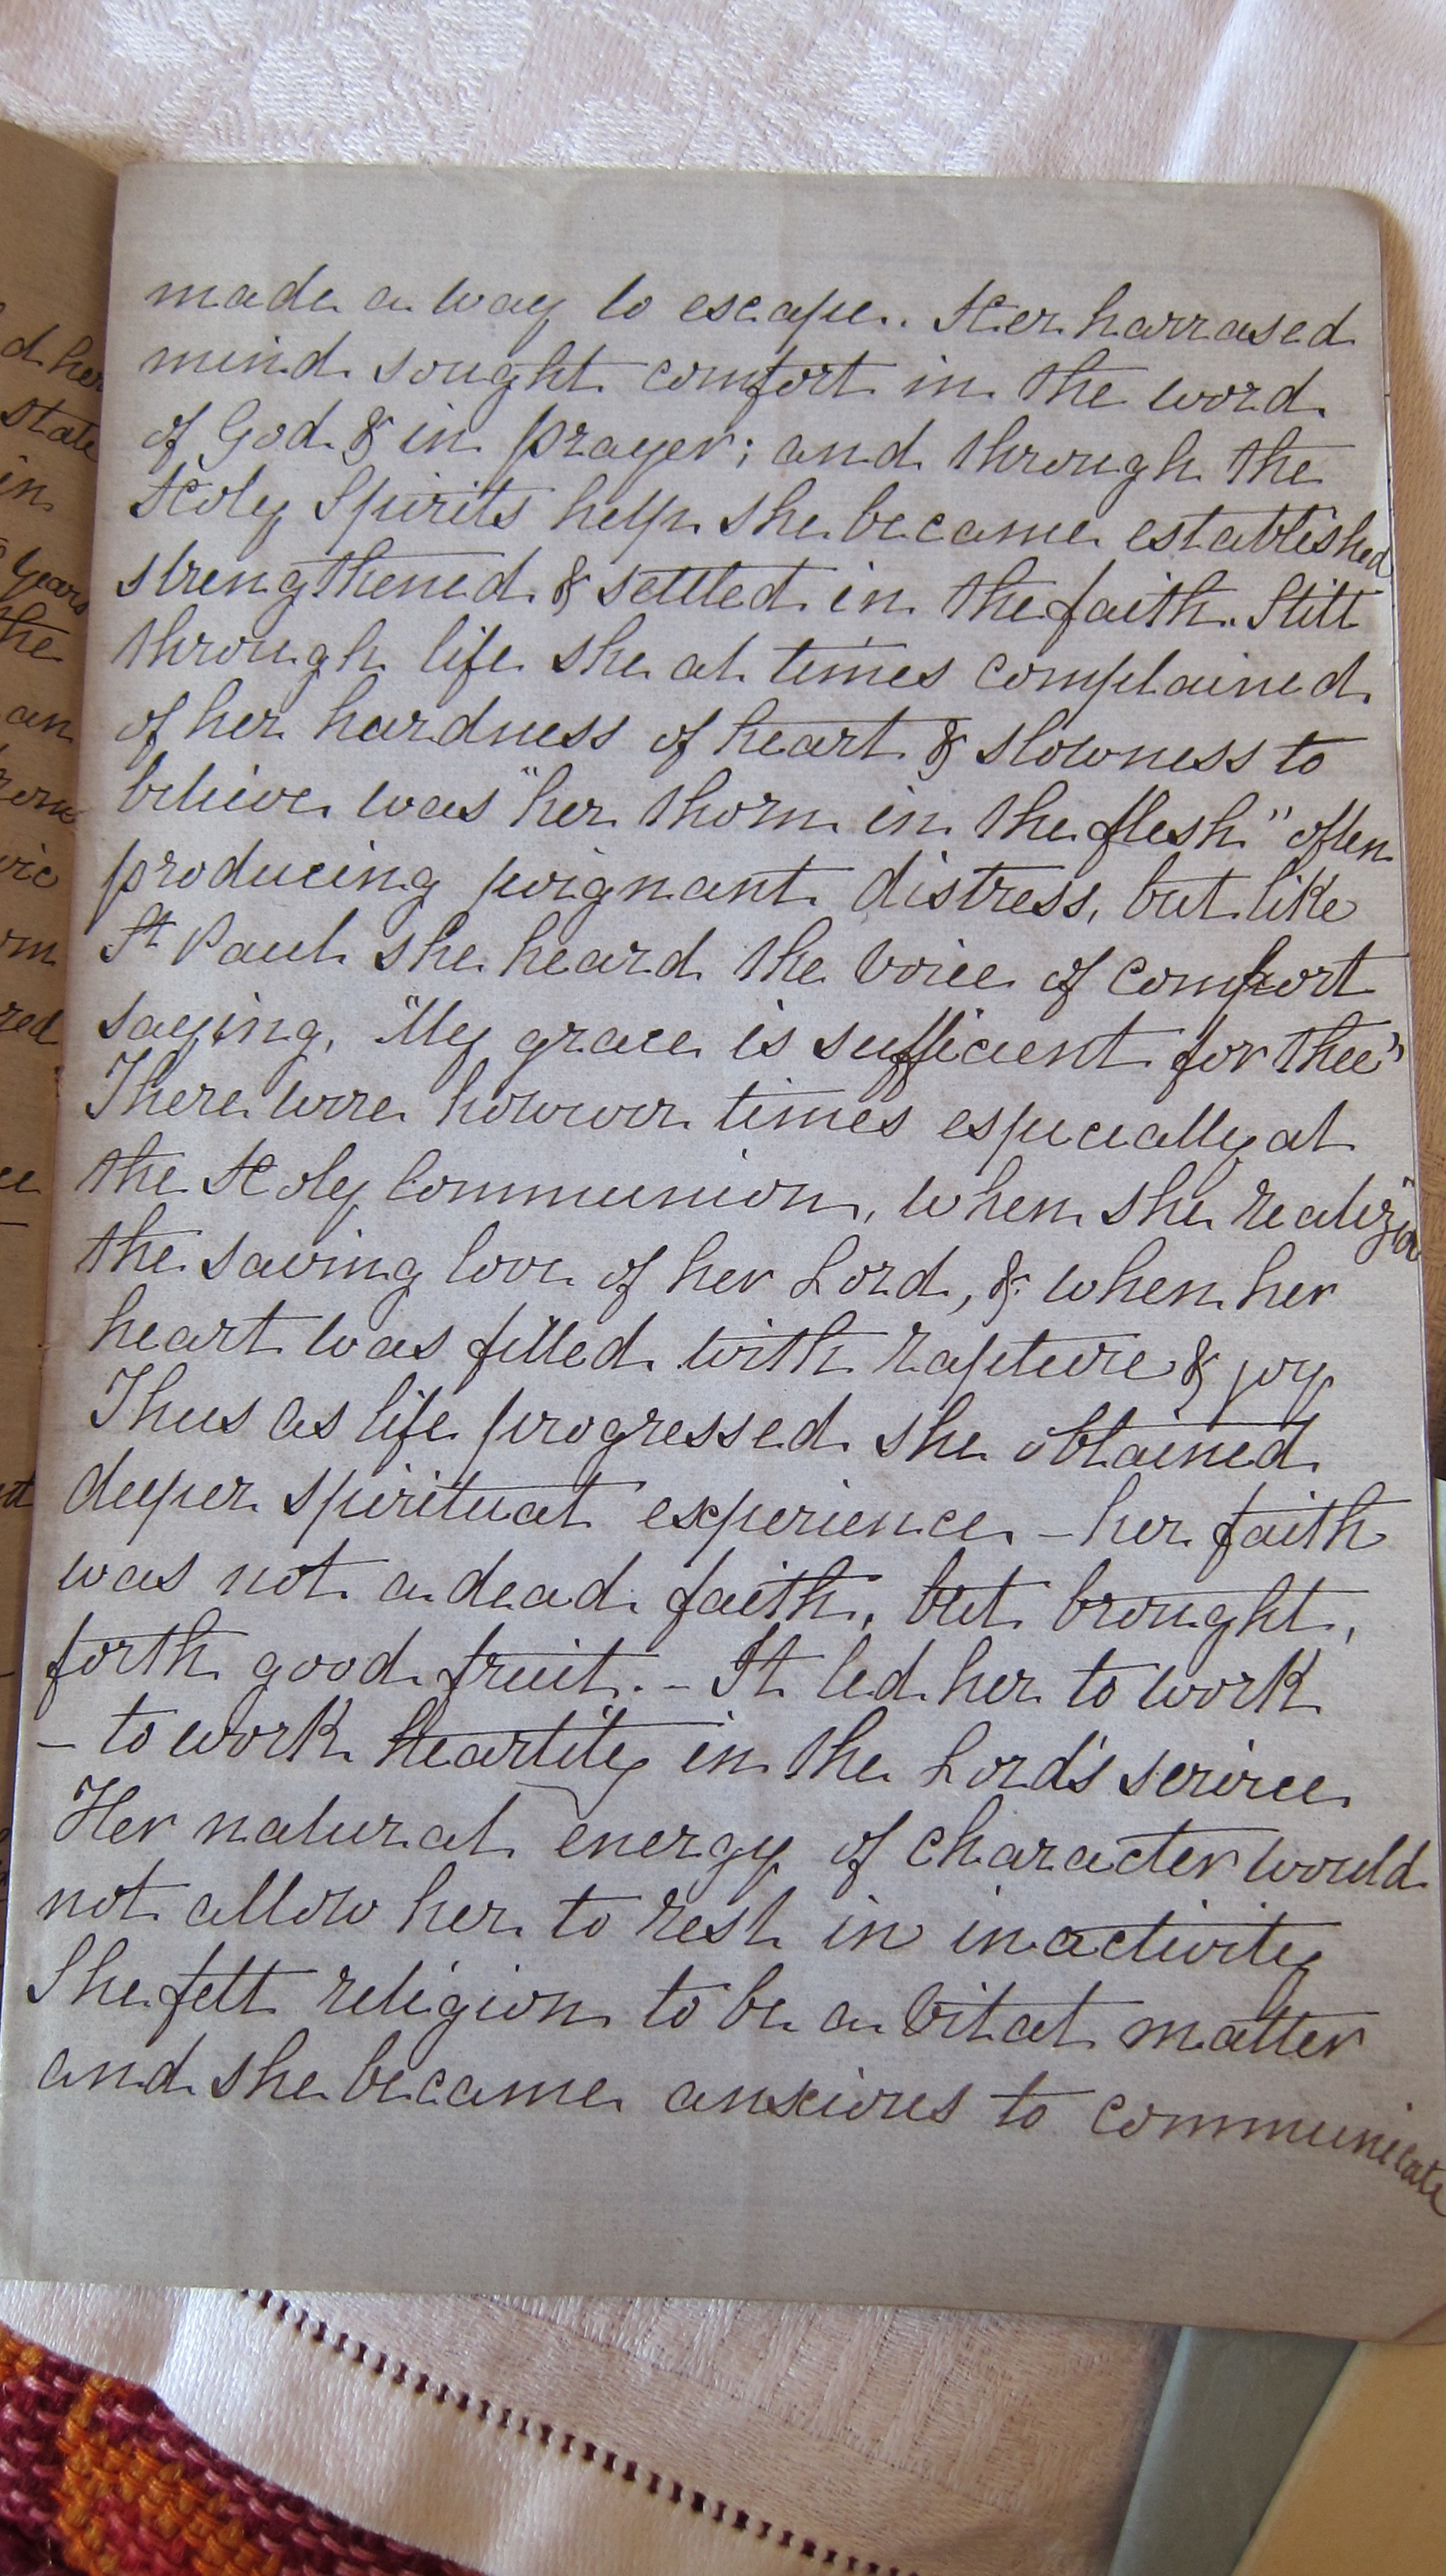 made a way to escape. Her harrased
mind sought comfort in the word
of God & in prayer; and through the
Holy Spirits help she became established
strengthened & settled in the faith. Still
through life she at times complained
of her hardness of heart & slowness to
believe was "her thorn in the flesh" often
producing poignant distress, but like
St Paul she heard the voice of comfort
saying, "My grace is sufficient for thee"
There were however times especially at
the Holy Communion, when she realized
the saving love of her Lord, & when her
heart was filled with rapture & joy
Thus as life progressed she obtained
deeper spiritual experience - her faith
was not a dead faith, but brought,
forth good fruit. - It led her to work
- to work heartily in the Lord's service
Her natural energy of character would
not allow her to rest in inactivity
She felt religion to be a vital matter
and she became anxious to communicate
d her
state
in
years
the
an
vic
rm
red